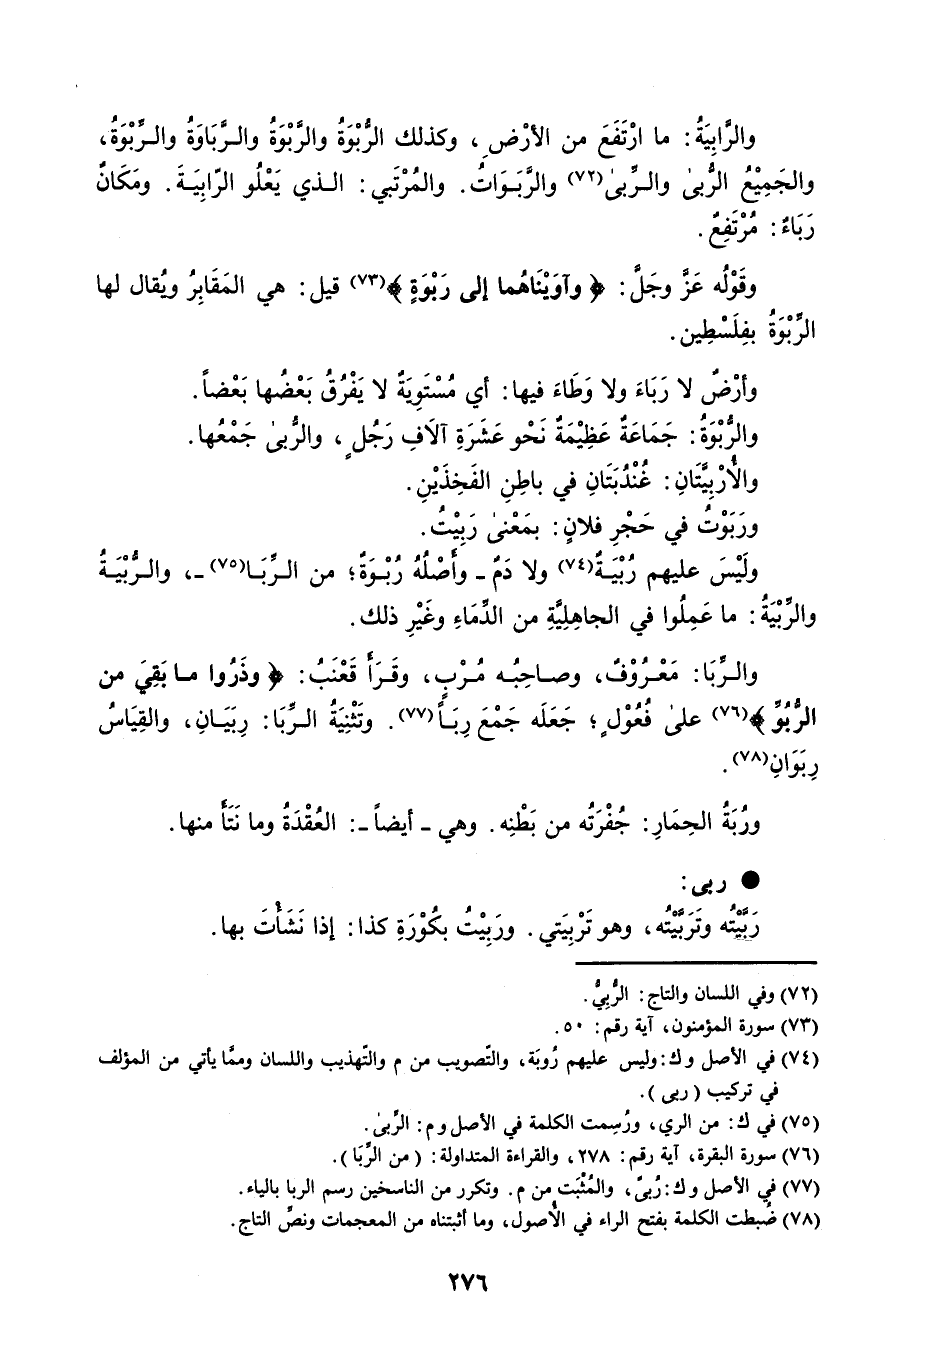 والرَّابِيَةُ: ما ارْتَفَعَ من الأرْضِ، وكذلك الرُّبْوَةُ والرَّبْوَةُ والرَّبَاوَةُ والرِّبْوَةُ،
والجَمِيْعُ الرُّبىٰ والرِّبىٰ(٧٢) والرَّبَوَاتُ. والمُرْتَبي: الذي يَعْلُو الرّابِيَةَ. ومَكَانٌ
رَبَاءٌ: مُرْتَفِعٌ.
وقَوْلُه عَزَّ وجَلَّ: ﴿وآوَيْنَاهُما إلى رَبْوَةٍ﴾(٧٣) قيل: هي المَقَابِرُ ويُقال لها
الرِّبْوَةُ بفِلَسْطِين.
وأرْضٌ لا رَبَاءَ ولا وَطَاءَ فيها: أي مُسْتَوِيَةٌ لا يَفْرُقُ بَعْضُها بَعْضاً.
والرُّبْوَةُ: جَمَاعَةٌ عَظِيْمَةٌ نَحْو عَشَرَةِ آلَافِ رَجُلٍ، والرُّبىٰ جَمْعُها.
والأُرْبِيَّتَانِ: غُنْدُبَتَانِ في باطِنِ الفَخِذَيْنِ.
ورَبَوْتُ في حَجْرِ فلانٍ: بمَعْنىٰ رَبِيْتُ.
ولَيْسَ عليهم رُبْيَةٌ(٧٤) ولا دَمٌ ـ وأَصْلُهُ رُبْوَةٌ؛ من الرِّبَا(٧٥) ـ، والرُّبْيَةُ
والرِّبْيَةُ: ما عَمِلُوا في الجاهِلِيَّةِ من الدِّمَاءِ وغَيْرِ ذلك.
والرِّبَا: مَعْرُوْفٌ، وصاحِبُه مُرْبٍ، وقَرَأَ قَعْنَبُ: ﴿وذَرُوا ما بَقِيَ من
الرُّبُوِّ﴾(٧٦) علىٰ فُعُوْلٍ؛ جَعَلَه جَمْعَ رِبَاً(٧٧). وتَثْنِيَةُ الرِّبَا: رِبَيَانِ، والقِيَاسُ
رِبَوَانِ(٧٨).
ورُبَةُ الحِمَارِ: جُفْرَتُه من بَطْنِه. وهي ـ أيضاً ـ: العُقْدَةُ وما نَتَأَ منها.
● ربى:
رَبَّيْتُه وتَرَبَّيْتُه، وهو تَرْبِيَتي. ورَبِيْتُ بكُوْرَةِ كذا: إذا نَشَأْتَ بها.
(٧٢) وفي اللسان والتاج: الرُّبِيُّ.
(٧٣) سورة المؤمنون، آية رقم: ٥٠.
(٧٤) في الأصل وك: وليس عليهم رُوبَة، والتّصويب من م والتّهذيب واللسان وممَّا يأتي من المؤلف
في تركيب (ربى).
(٧٥) في ك: من الري، ورُسمت الكلمة في الأصل وم: الرِّبىٰ.
(٧٦) سورة البقرة، آية رقم: ٢٧٨، والقراءة المتداولة: (من الرِّبَا).
(٧٧) في الأصل وك: رُبىً، والمُثْبَت من م. وتكرر من الناسخين رسم الربا بالياء.
(٧٨) ضُبطت الكلمة بفتح الراء في الأُصول، وما أثبتناه من المعجمات ونصِّ التاج.
٢٧٦